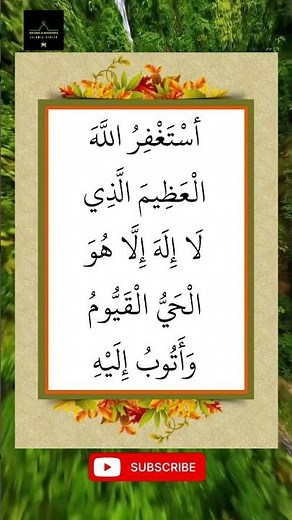 أسْتَغْفِرُ اللَّهَ
الْعَظِيمَ الَّذِي
لَا إِلَهَ إِلَّا هُوَ
الْحَيُّ الْقَيُّومُ
وَأَتُوبُ إِلَيْهِ
SUBSCRIBE